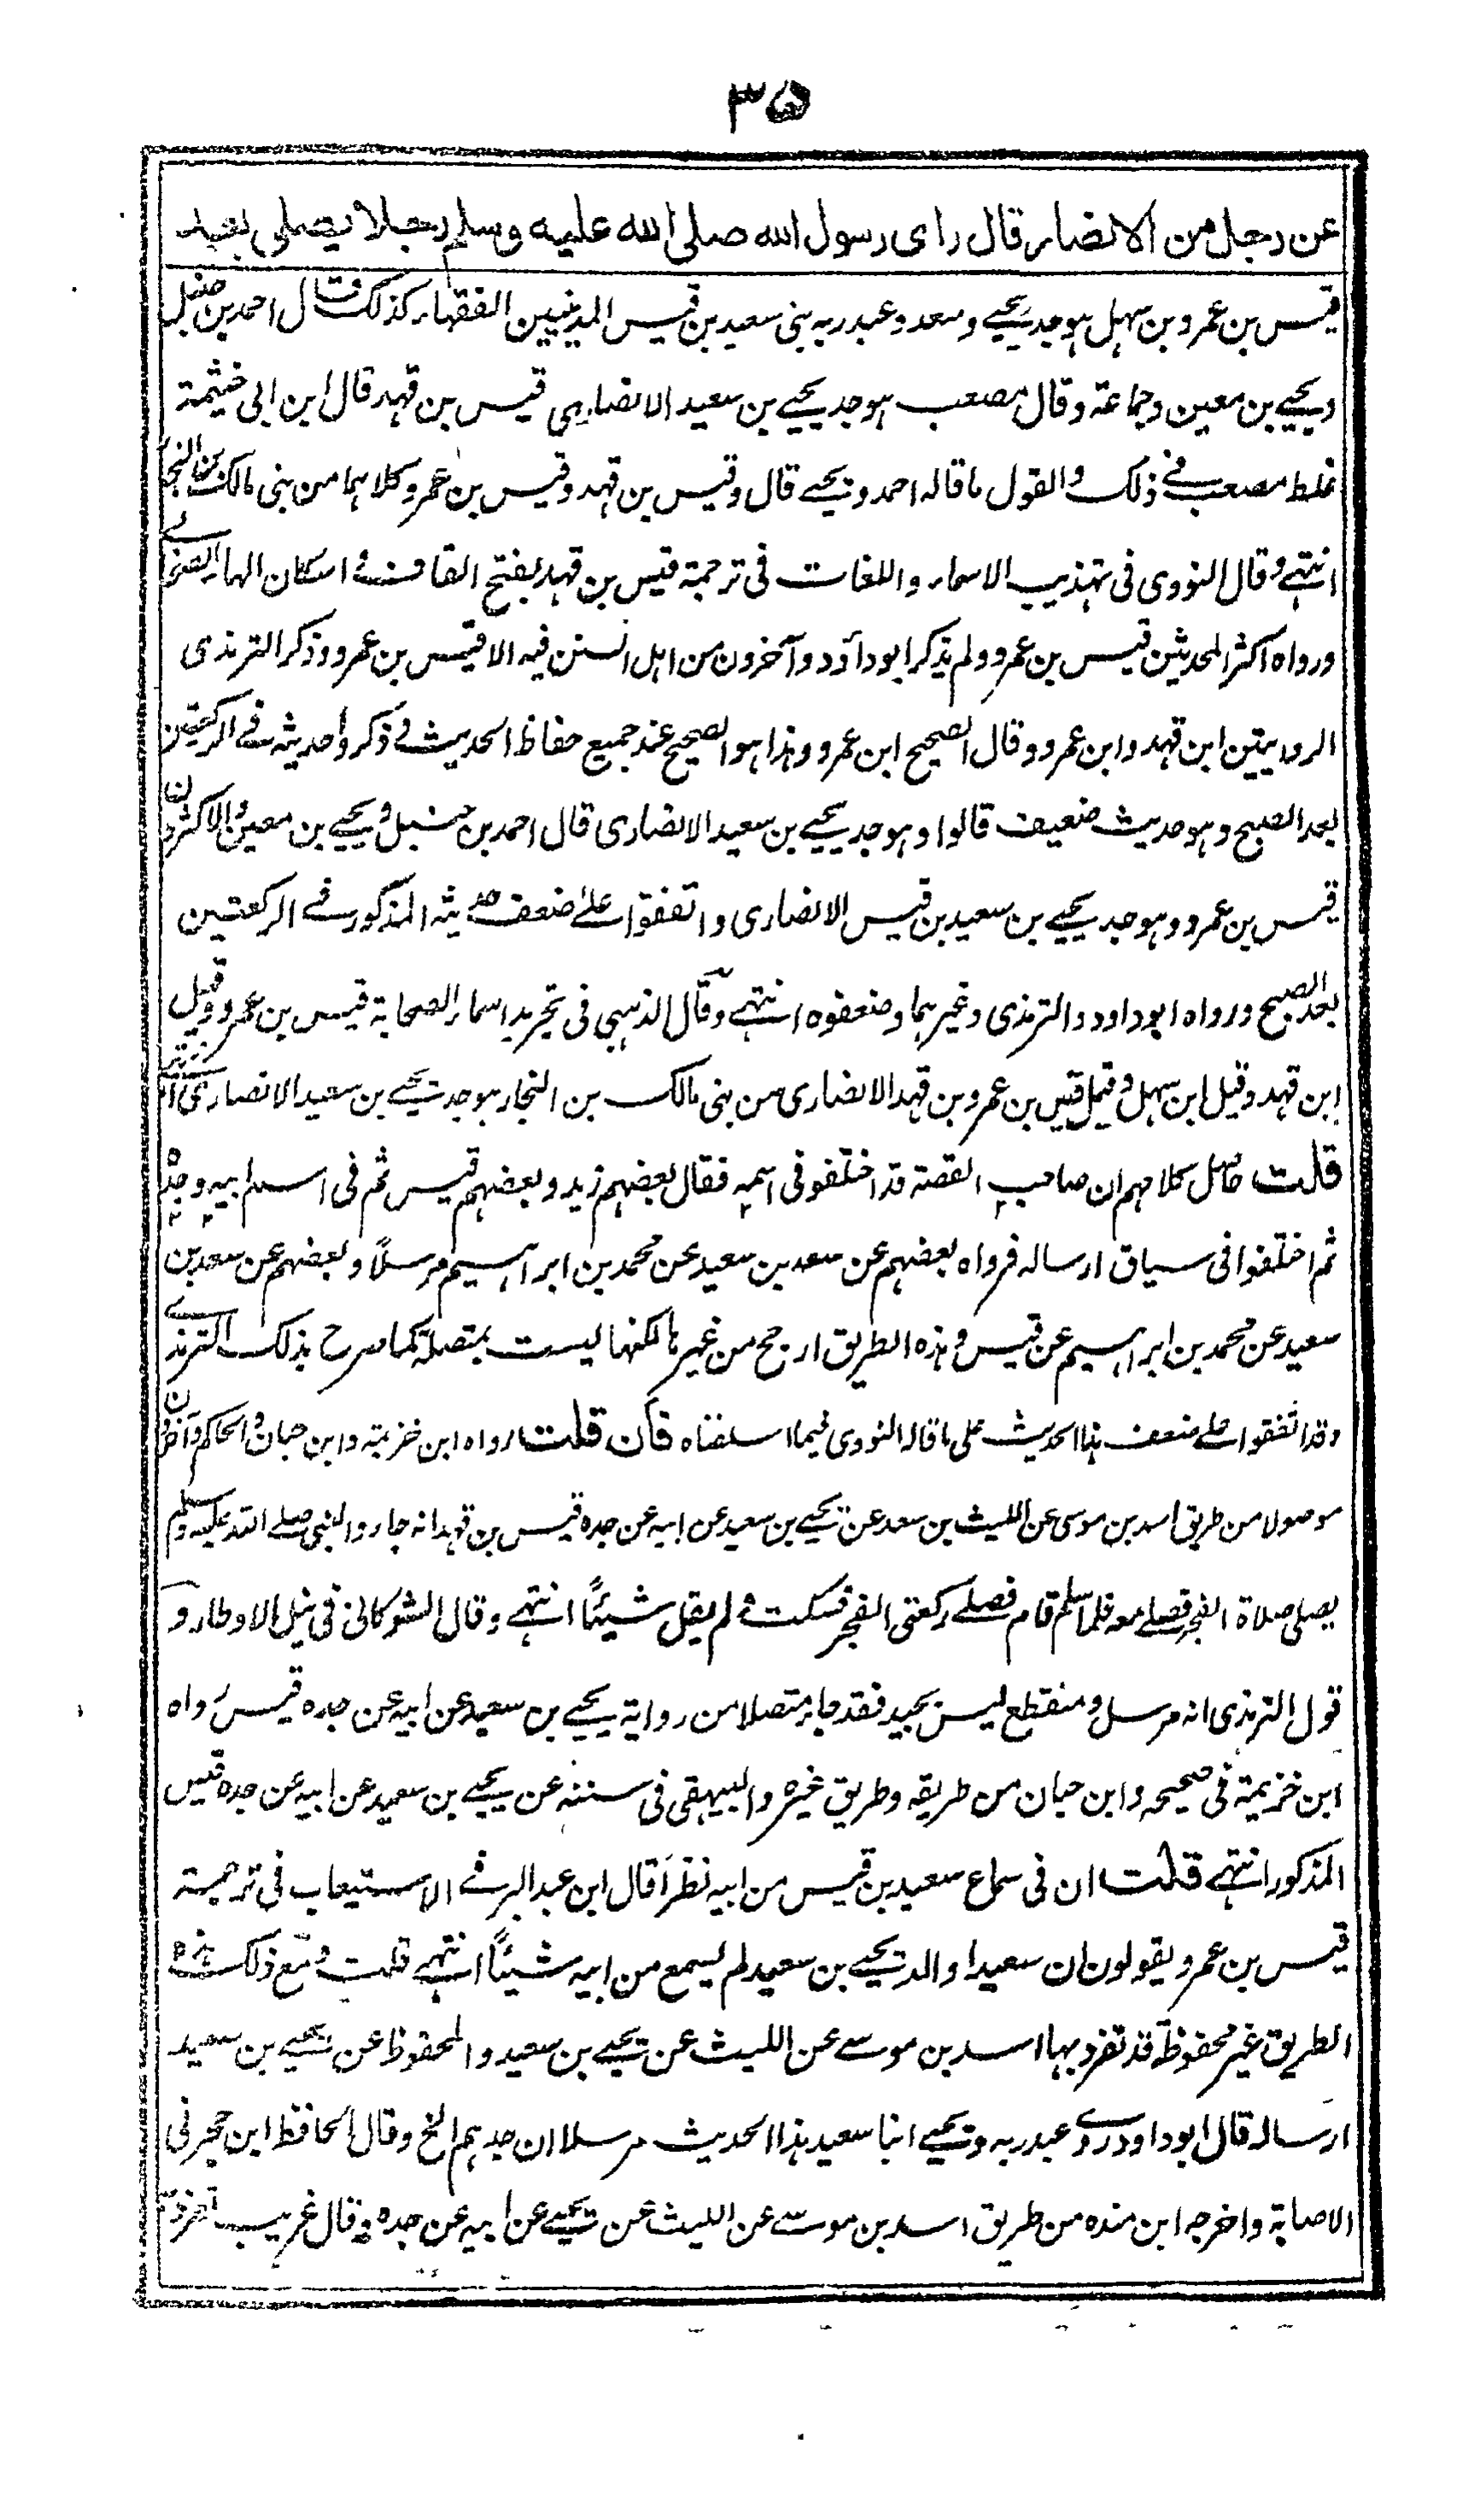 ۳۵
عن رجل من الانصار قال رای رسول الله صلی الله علیه وسلم رجلا یصلی بعد
قیس بن عمرو بن سهل هو جد یحیے وسعد وعبد ربه بنی سعید بن قیس المدنیین الفقهاء کذلک قال احمد بن حنبل
ویحیے بن معین وجماعة وقال مصعب هو جد یحیے بن سعید الانصاری قیس بن قهد قال ابن ابی خیثمة
غلط مصعب فے ذلک والقول ما قاله احمد ویحیے قال وقیس بن قهد وقیس بن عمرو کلاهما من بنی مالک بن النجار
انتهے وقال النووی فی تهذیب الاسماء واللغات فی ترجمة قیس بن قهد بفتح القاف واسکان الهاء الصحابے
ورواه اکثر المحدثین قیس بن عمرو ولم یذکر ابو داؤد وآخرون من اهل السنن فیه الا قیس بن عمرو وذکر الترمذی
الروایتین ابن قهد وابن عمرو وقال الصحیح ابن عمرو وهذا هو الصحیح عند جمیع حفاظ الحدیث وذکروا حدیثه فے الرکعتین
بعد الصبح وهو حدیث ضعیف قالوا وهو جد یحیے بن سعید الانصاری قال احمد بن حنبل ویحیے بن معین والاکثرون
قیس بن عمرو وهو جد یحیے بن سعید بن قیس الانصاری واتفقوا علیٰ ضعف حدیثه المذکور فے الرکعتین
بعد الصبح ورواه ابو داود والترمذی وغیرهما وضعفوه انتهے وقال الذهبی فی تجرید اسماء الصحابة قیس بن عمرو وقیل
ابن قهد وقیل ابن سهل وقیل قیس بن عمرو بن قهد الانصاری من بنی مالک بن النجار هو جد یحیے بن سعید الانصاری
قلت حاصل کلامهم ان صاحب القصة قد اختلفو فی اسمه فقال بعضهم زید وبعضهم قیس ثم فی اسم ابیه وجده
ثم اختلفوا فی سیاق ارساله فرواه بعضهم عن سعد بن سعید عن محمد بن ابراهیم مرسلاً وبعضهم عن سعد بن
سعید عن محمد بن ابراهیم عن قیس وهذه الطریق ارجح من غیرها لکنها لیست بمتصلة کما صرح بذلک الترمذے
وقد اتفقوا علے ضعف هذا الحدیث علی ما قاله النووی فیما اسلفناه فان قلت رواه ابن خزیمة وابن حبان والحاکم وآخرون
موصولا من طریق اسد بن موسی عن اللیث بن سعد عن یحیے بن سعید عن ابیه عن جده قیس بن قهد انه جاء والنبی صلے الله علیه وسلم
یصلی صلاة الفجر فصلے معه فلما سلم قام فصلے رکعتی الفجر فسکت ولم یقل شیئاً انتهے وقال الشوکانی فی نیل الاوطار و
قول الترمذی انه مرسل ومنقطع لیس بجید فقد جاء متصلا من روایة یحیے بن سعید عن ابیه عن جده قیس رواه
ابن خزیمة فی صحیحه وابن حبان من طریقه وطریق غیره والبیهقی فی سننه عن یحیے بن سعید عن ابیه عن جده قیس
المذکور انتهے قلت ان فی سماع سعید بن قیس من ابیه نظرا قال ابن عبد البر فے الاستیعاب فی ترجمة
قیس بن عمرو یقولون ان سعیدا والد یحیے بن سعید لم یسمع من ابیه شیئاً انتهے قلت ومع ذلک هذه
الطریق غیر محفوظة قد تفرد بها اسد بن موسے عن اللیث عن یحیے بن سعید والمحفوظ عن یحیے بن سعید
ارساله قال ابو داود روے عبد ربه ویحیے ابنا سعید هذا الحدیث مرسلا ان جدهم الخ وقال الحافظ ابن حجر فی
الاصابة واخرجه ابن منده من طریق اسد بن موسے عن اللیث عن یحیے عن ابیه عن جده وقال غریب تفرد به